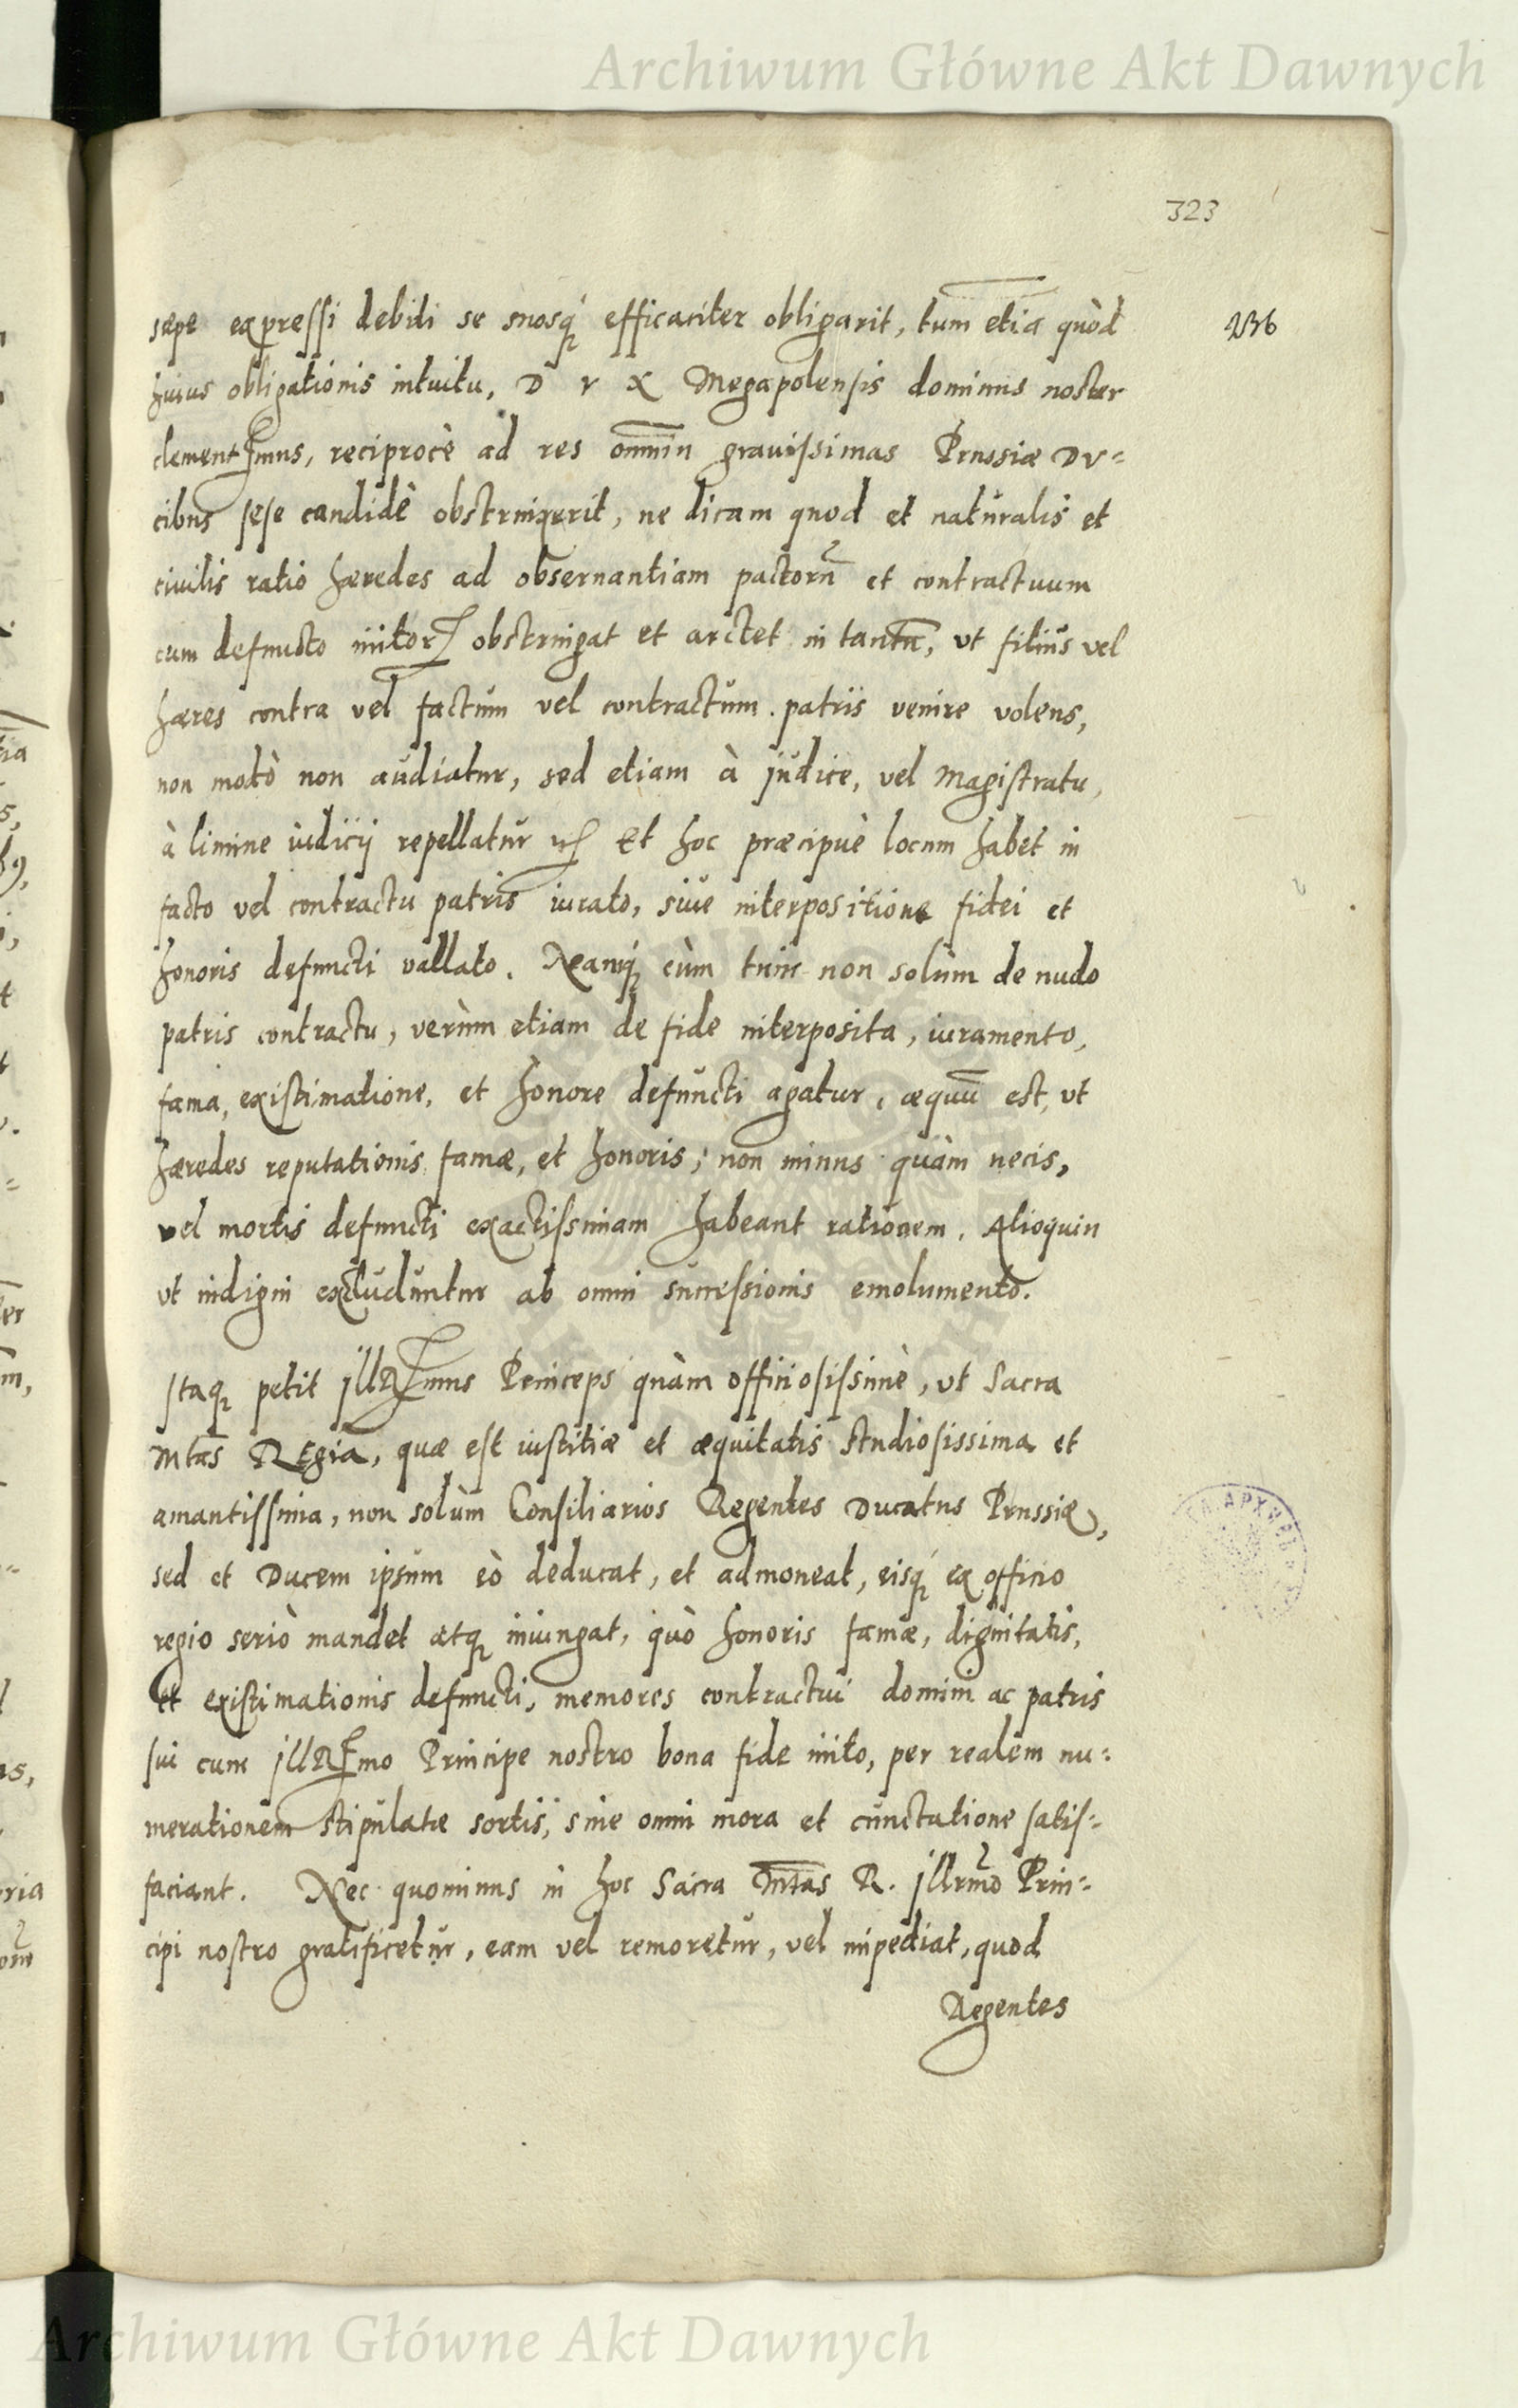 Archiwum Główne Akt Dawnych
323
236
sæpe expressi debiti se suosq́ue efficaciter obligarit, tum etiā quòd
huius obligationis intuitu, D V X Megapolensis dominus noster
clementssmus, reciprocè ad res omnīn grauissimas Prussiæ DV=
cibus sese candidè obstrinxerit, ne dicam quod et naturalis et
ciuilis ratio hæredes ad obseruantiam pactorū et contractuum
cum defuncto initor. obstringat et arctet in tantū, vt filius vel
hæres contra vel factum vel contractum patris venire volens,
non modò non audiatur, sed etiam à judice, vel Magistratu,
à limine iudicij repellatur Et hoc præcipuè locum habet in
facto vel contractu patris iurato, siue interpositione fidei et
honoris defuncti vallato. Namq́ cùm tunc non solùm de nudo
patris contractu, verùm etiam de fide interposita, iuramento,
fama, existimatione, et honore defuncti agatur, æquū est, vt
hæredes reputationis famæ, et honoris, non minus quàm necis,
vel mortis defuncti exactissimam habeant rationem. Alioquin
vt indigni excluduntur ab omni successionis emolumento.
Itaq petit jllRssmus Princeps quàm officiosissimè, vt Sacra
Mtas REgia, quæ est iustitiæ et æquitatis studiosissima et
amantissima, non solùm Consiliarios Regentes Ducatus Prussiæ,
sed et Ducem ipsum eò deducat, et admoneat, eisq́ ex officio
regio seriò mandet atq iniungat, quò honoris famæ, dignitatis,
et existimationis defuncti, memores contractui domini ac patris
sui cum jllRssmo Principe nostro bona fide inito, per realem nu=
merationem stipulatæ sortis, sine omni mora et cunctatione satis=
faciant. Nec quominus in hoc Sacra Mtas R. jllrmo Prin=
cipi nostro gratificetur, eam vel remoretur, vel impediat, quod
Regentes
Archiwum Główne Akt Dawnych